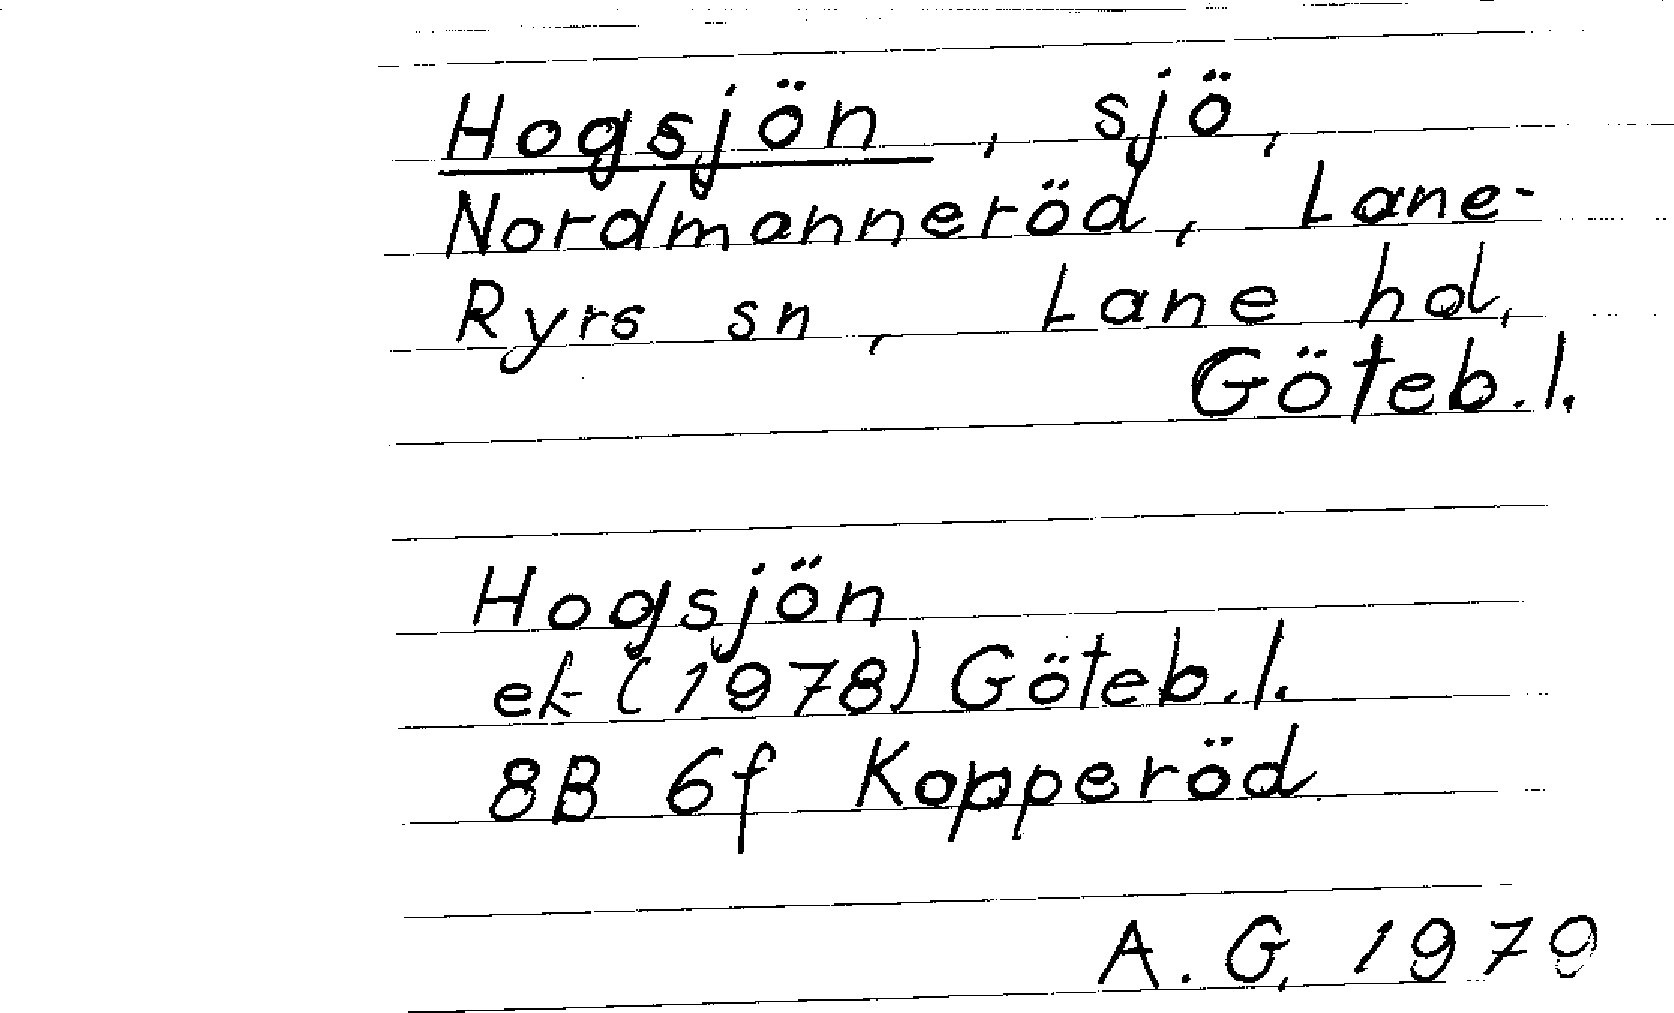 Hogsjön, sjö,
Nordmanneröd, Lane-
Ryrs sn, Lane hd,
Göteb. l.
Hogsjön
ek (1978) Göteb. l.
8B 6f Kopperöd
A. G. 1979